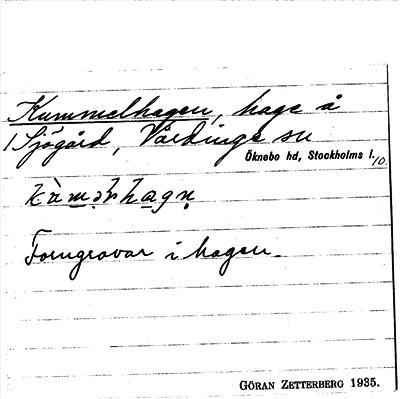 Kummelhagen, hage å
1 Sjögård, Vårdinge sn
Öknebo hd, Stockholms l.
10.
Forngravar i hagen.
GÖRAN ZETTERBERG 1935.